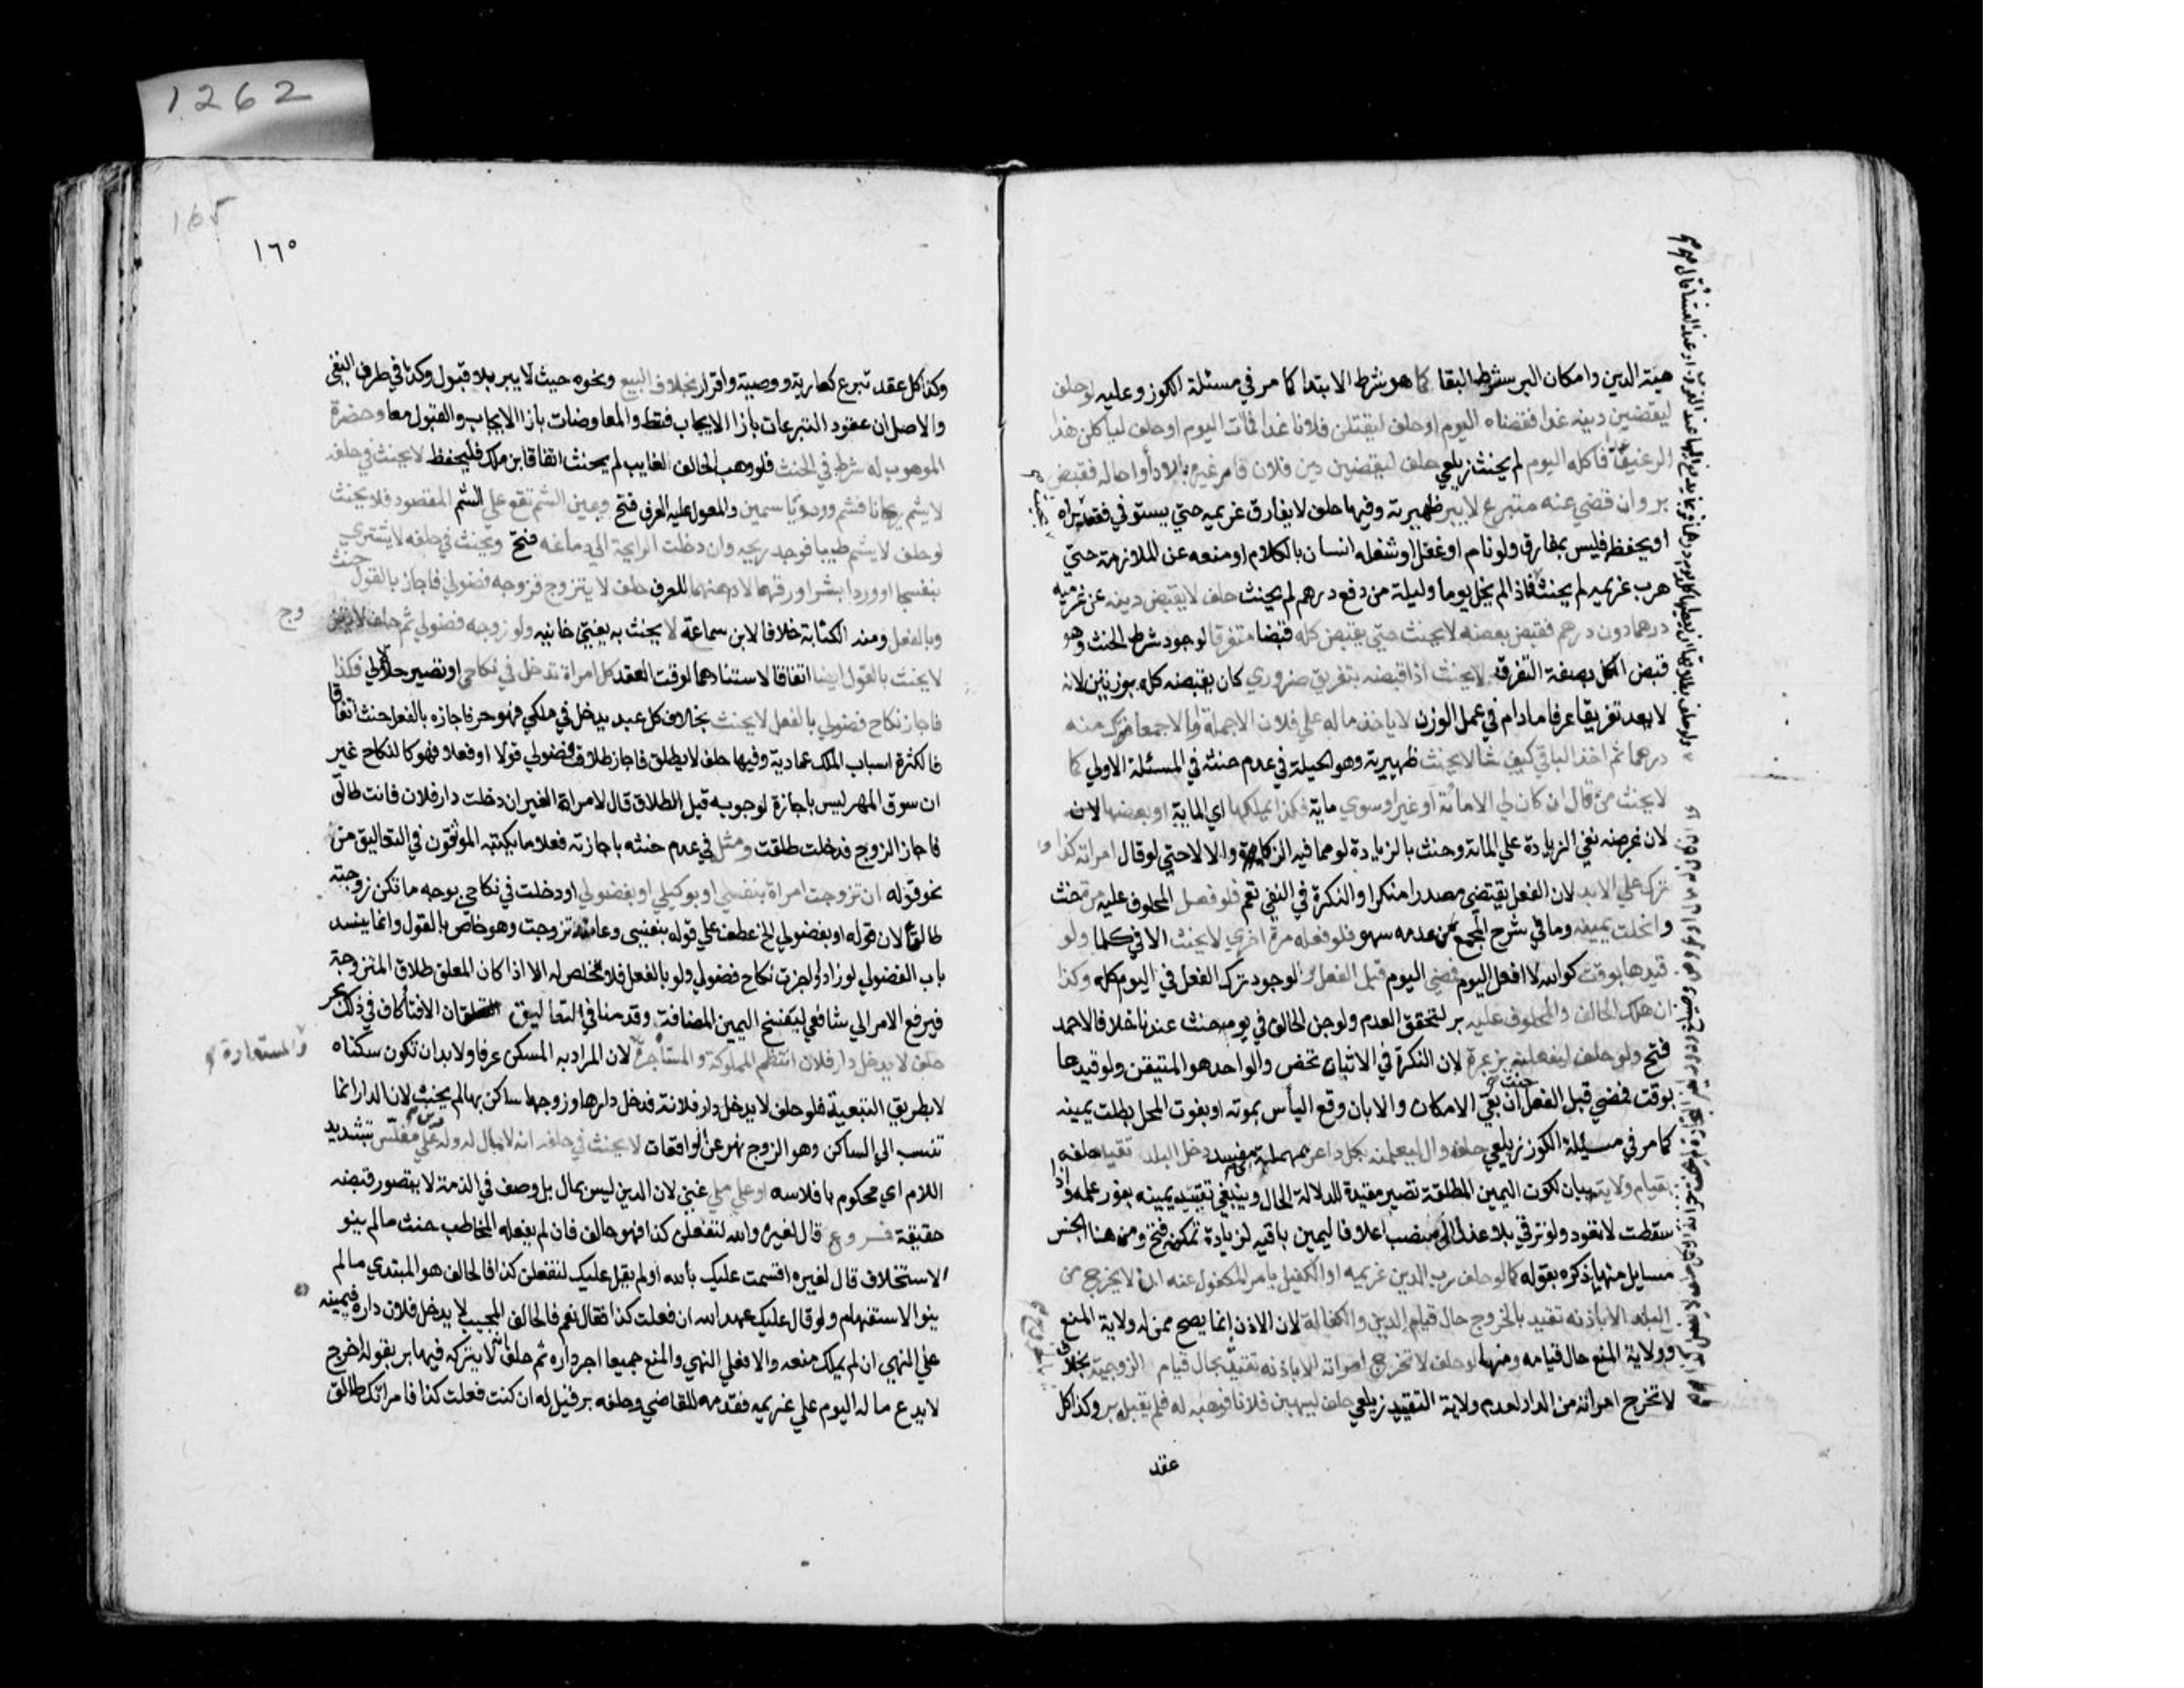 1262
165
١٦٥
هبة الدين وامكان البر شرط البقا كما هو شرط الابتدا كما مر في مسئلة الكوز وعليه لو حلف
ليقضين دينه غدا فقضاه اليوم او حلف ليقتلن فلانا غدا فمات اليوم او حلف لياكلن هذا
الرغيف غدا فاكله اليوم لم يحنث زيلعي حلف ليقضين دين فلان فامر غيره بالاداء او احاله فقبض
بر وان قضي عنه متبرع لا يبر ظهيرية وفيها حلف لا يفارق غريمه حتي يستوفي فقعد يراه
او يحفظه فليس بمفارق ولو نام او غفل او شغله انسان بالكلام او منعه عن الملازمة حتي
هرب غريمه لم يحنث فاذا لم يخل يوما وليلة من دفع درهم لم يحنث حلف لا يقبض دينه عن غريمه
درهما دون درهم فقبض بعضه لا يحنث حتي يقبض كله قبضا متفرقا لوجود شرط الحنث وهو
قبض الكل بصفة التفرق لا يحنث اذا قبضه بتفريق ضروري كان يقبضه كله بوزنين لانه
لا يعد تفريقا عرفا ما دام في عمل الوزن لا ياخذ ماله علي فلان الا جملة والا جمعا فترك منه
درهما ثم اخذ الباقي كيف شا لا يحنث ظهيرية وهو الحيلة في عدم حنثه في المسئلة الاولي كما
لا يحنث من قال ان كان لي الا مائة او غير او سوي ماية فكذا بملكها اي الماية او بعضها لان
لان غرضه نفي الزيادة علي المائة وحنث بالزيادة لو مما فيه الزكاة والا لا حتي لو قال امراته كذا
تركه علي الابد لان الفعل يقتضي مصدرا منكرا والنكرة في النفي تعم فلو فعل المحلوف عليه مرة حنث
وانحلت يمينه وما في شرح المجمع من عدمه سهو فلو فعله مرة اخري لا يحنث الا في كلما ولو
قيدها بوقت كوالله لا افعل اليوم فمضي اليوم قبل الفعل بر لوجود ترك الفعل في اليوم كله وكذا
ان هلك الحالف والمحلوف عليه بر لتحقق العدم ولو جن الحالف في يومه حنث عندنا خلافا لاحمد
فتح ولو حلف ليفعلنه بر بمرة لان النكرة في الاثبات تخص والواحد هو المتيقن ولو قيدها
بوقت فمضي قبل الفعل حنث ان بقي الامكان والا بان وقع الياس بموته او بفوت المحل بطلت يمينه
كما مر في مسئلة الكوز زيلعي حلفه وال ليعلمنه بكل داعر بمهملة مفسد دخل البلد تقيد حلفه
بقيام ولايته بيان لكون اليمين المطلقة تصير مقيدة لدلالة الحال وينبغي تقييد يمينه بفور علمه واذا
سقطت لا تعود ولو ترقي بلا عزل الي منصب اعلا فاليمين باقيه لزيادة تمكنه فتح ومن هذا الجنس
مسايل منها ما ذكره بقوله كما لو حلف رب الدين غريمه او الكفيل بامر المكفول عنه ان لا يخرج من
البلد الا باذنه تقيد بالخروج حال قيام الدين والكفالة لان الاذن انما يصح ممن له ولاية المنع
وولاية المنع حال قيامه ومنها لو حلف لا تخرج امراته الا باذنه تقيد بحال قيام الزوجية بخلاف
لا تخرج امراته من الدار لعدم ولاية التقييد زيلعي حلف ليهبن فلانا فوهبه له فلم يقبل بر وكذا كل
عقد
وكذا كل عقد تبرع كعارية ووصية واقرار بخلاف البيع ونحوه حيث لا يبر بلا قبول وكذا في طرف النفي
والاصل ان عقود التبرعات بازا الايجاب فقط والمعاوضات بازا الايجاب والقبول معا وحضرة
الموهوب له شرط في الحنث فلو وهب الحالف لغايب لم يحنث اتفاقا ابن ملك فليحفظ لا يحنث في حلفه
لا يشم ريحانا فشم وردا وياسمين والمعول عليه العرف فتح ويمين الشم تقع علي الشم المقصود فلا يحنث
لو حلف لا يشم طيبا فوجد ريحه وان دخلت الرايحة الي دماغه فتح ويحنث في حلفه لا يشتري
بنفسجا او وردا بشرا ورقهما لا دهنهما للعرف حلف لا يتزوج فزوجه فضولي فاجاز بالقول حنث
وبالفعل ومنه الكتابة خلافا لابن سماعة لا يحنث به يفتي خانيه ولو زوجه فضولي ثم حلف لا يتزوج
لا يحنث بالقول ايضا اتفاقا لاستنادها لوقت العقد كل امراة تدخل في نكاحي او تصير حلالا لي فكذا
فاجاز نكاح فضولي بالفعل لا يحنث بخلاف كل عبد يدخل في ملكي فهو حر فاجازه بالفعل حنث اتفاقا
لكثرة اسباب الملك عمادية وفيها حلف لا يطلق فاجاز طلاق فضولي قولا او فعلا فهو كالنكاح غير
ان سوق المهر ليس باجازة لوجوبه قبل الطلاق قال لامراة الغير ان دخلت دار فلان فانت طالق
فاجاز الزوج فدخلت طلقت ومثله في عدم حنثه باجازته فعلا ما يكتبه الموثقون في التعاليق من
نحو قوله ان تزوجت امراة بنفسي او بوكيلي او بفضولي او دخلت في نكاحي بوجه ما تكن زوجته
طالقا لان قوله او بفضولي الخ عطف علي قوله بنفسي وعامله تزوجت وهو خاص بالقول وانما ينسد
باب الفضولي لو زاد او اجزت نكاح فضولي ولو بالفعل فلا مخلص له الا اذا كان المعلق طلاق المتزوجة
فيرفع الامر الي شافعي ليفسخ اليمين المضافة وقدمنا في التعاليق ان الافتا كاف في ذلك بحر
حلف لا يدخل دار فلان انتظم المملوكة والمستاجرة والمستعارة لان المراد به المسكن عرفا ولا بد ان تكون سكناه
لا بطريق التبعية فلو حلف لا يدخل دار فلانة فدخل دارها وزوجها ساكن بها لم يحنث لان الدار انما
تنسب الي الساكن وهو الزوج نهر عن الواقعات لا يحنث في حلفه انه لا مال له وله دين علي مفلس بتشديد
اللام اي محكوم بافلاسه او علي ملي غني لان الدين ليس بمال بل وصف في الذمة لا يتصور قبضه
حقيقة فروع قال لغيره والله لتفعلن كذا فهو حالف فان لم يفعله المخاطب حنث ما لم ينو
الاستحلاف قال لغيره اقسمت عليك بالله او لم يقل عليك لتفعلن كذا فالحالف هو المبتدي ما لم
ينو الاستفهام ولو قال عليك عهد الله ان فعلت كذا فقال نعم فالحالف المجيب لا يدخل فلان داره فيمينه
علي النهي ان لم يملك منعه والا فعلي النهي والمنع جميعا اجر داره ثم حلف انه لا يتركه فيها بر بقوله اخرج
لا يدع ماله اليوم علي غريمه فقدمه للقاضي وحلفه بر قيل له ان كنت فعلت كذا فامراتك طالق